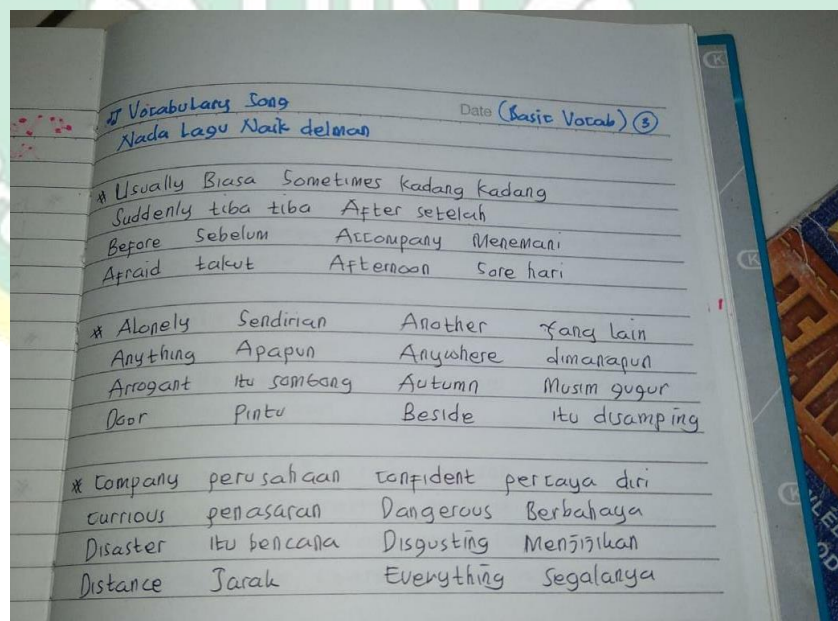 ♫ Vocabulary Song
Date (Basic Vocab) ③
Nada Lagu Naik delman
* Usually Biasa Sometimes Kadang Kadang
Suddenly tiba tiba After setelah
Before Sebelum Accompany Menemani
Afraid takut Afternoon Sore hari
* Alonely Sendirian Another Yang lain
Anything Apapun Anywhere dimanapun
Arrogant itu sombong Autumn Musim gugur
Door Pintu Beside itu disamping
* Company perusahaan Confident percaya diri
Currious penasaran Dangerous Berbahaya
Disaster itu bencana Disgusting Menjijikan
Distance Jarak Everything Segalanya